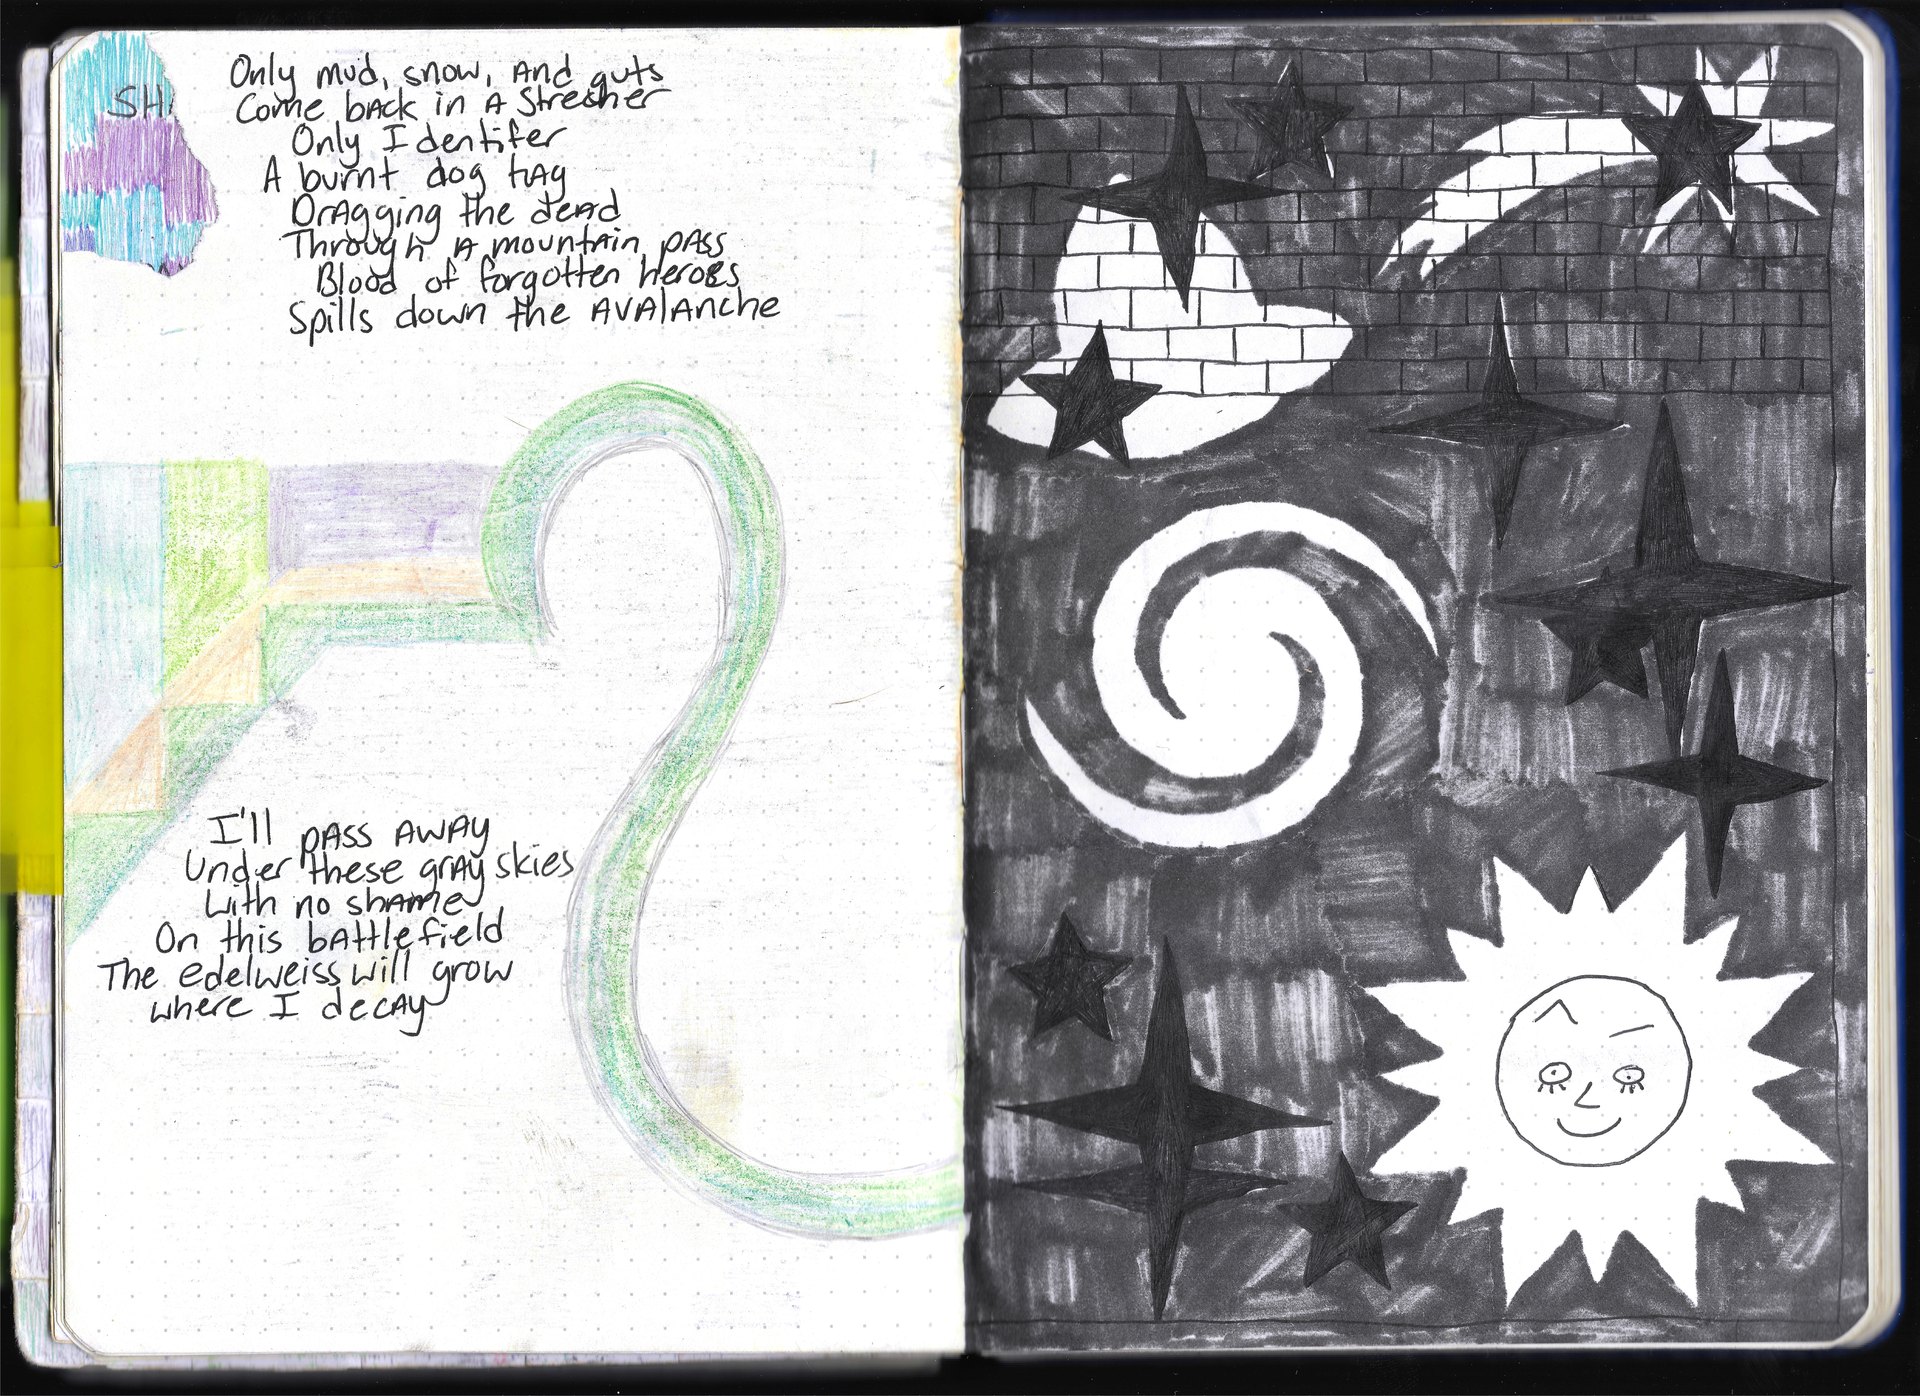 SH
Only mud, snow, and guts
Come back in a Strecher
Only Identifer
A burnt dog tag
Dragging the dead
Through a mountain pass
Blood of forgotten heroes
Spills down the avalanche
I'll pass away
Under these gray skies
With no shame
On this battlefield
The edelweiss will grow
where I decay